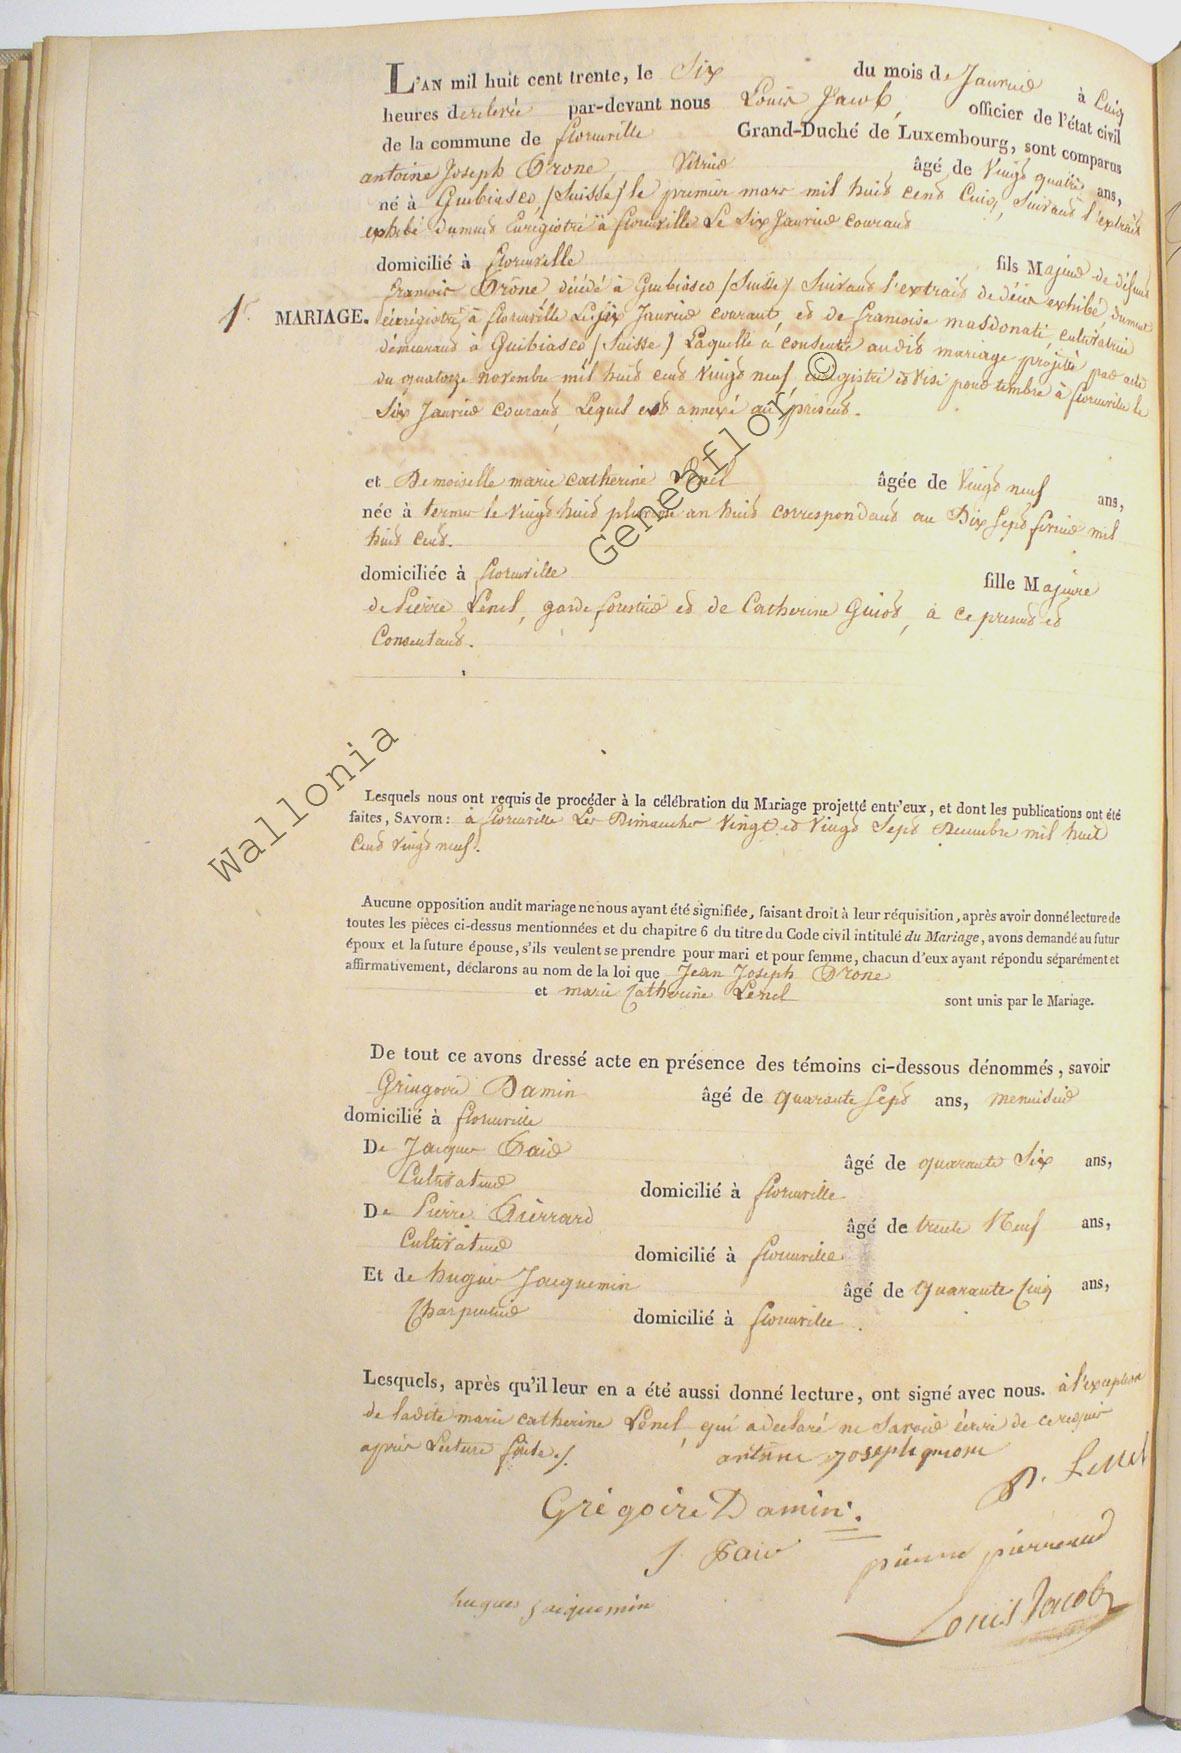 L'AN mil huit cent trente, le Six du mois de Janvier à Cinq
heures de relevée par-devant nous Louis Jacob, officier de l'état civil
de la commune de florenville Grand-Duché de Luxembourg, sont comparus
antoine Joseph Drone, Vitrier âgé de Vingt quatre ans,
né à Guibiasco, (Suisse) le premier mars mil huit cent Cinq, Suivant l'extrait
exhibé dument Enregistré à florenville Le Six Janvier courant
domicilié à florenville fils Majeur de défunt
francois Drone décédé à Guibiasco (Suisse) Suivant l'extrait de décès exhibé, dument
enrégistré à florenville Le six Janvier courant, et de francoise masdonati, cultivatrice
demeurant à Guibiasco, (Suisse) Laquelle a consentie audit mariage projeté par acte
1er MARIAGE.
du quatorze novembre mil huit cent Vingt neuf, enregistré et Visé pour timbre à florenville le
Six Janvier courant, Lequel est annexé au présent.
et Demoiselle marie catherine Lenel âgée de Vingt neuf ans,
née à termes le Vingt huit pluviose an huit correspondant au Dix Sept fevrier mil
huit cent.
domiciliée à florenville fille Majeure
de Pierre Lenel, garde forestier et de Catherine Guiot, à ce present et
Consentant.
Lesquels nous ont requis de procéder à la célébration du Mariage projetté entr'eux, et dont les publications ont été
faites, SAVOIR: à florenville Les Dimanches Vingt et Vingt Sept Decembre mil huit
Cent Vingt neuf.
Aucune opposition audit mariage ne nous ayant été signifiée, faisant droit à leur réquisition, après avoir donné lecture de
toutes les pièces ci-dessus mentionnées et du chapitre 6 du titre du Code civil intitulé du Mariage, avons demandé au futur
époux et la future épouse, s'ils veulent se prendre pour mari et pour femme, chacun d'eux ayant répondu séparément et
affirmativement, déclarons au nom de la loi que Jean Joseph Drone
et marie Catherine Lenel sont unis par le Mariage.
De tout ce avons dressé acte en présence des témoins ci-dessous dénommés, savoir
Gringoire Damin âgé de quarante Sept ans, menuisier
domicilié à florenville
De Jacques âgé de quarante Six ans,
Cultivateur domicilié à florenville
De Pierre Pierrard âgé de trente Neuf ans,
Cultivateur domicilié à florenville
Et de hugues Jacquemin âgé de quarante Cinq ans,
Charpentier domicilié à florenville.
Lesquels, après qu'il leur en a été aussi donné lecture, ont signé avec nous. à l'exception
de ladite marie catherine Lenel, qui a declaré ne Savoir écrire de ce requis
après Lecture faite.
antoine joseph
P. Lenel
Grégoire Damin.
pierre pierrard
hugues jacquemin
Louis Jacob
Wallonia Geneaflor ©